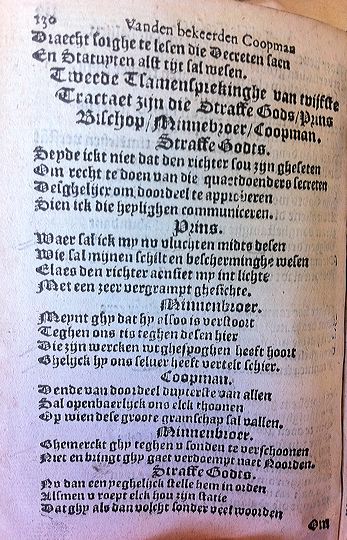 130 Vanden bekeerden Coopman
Draecht sorghe te lesen die Decreten saen
En Statupten alst tijt sal wesen.
Tweede Tsamensprekinghe van twijfste
Tractaet zijn die Straffe Gods/Prins
Bisschop/Minnebroer/Coopman.
Straffe Godts.
Seyde ickt niet dat den richter sou zijn gheseten
Om recht te doen van die quaetdoenders secreten
Desghelijcx om doordeel te approberen
Sien ick die heylighen communiceren.
Prins.
Waer sal ick my nv vluchten midts desen
Wie sal mijnen schilt en bescherminghe wesen
Elaes den richter aensiet my int lichte
Met een zeer vergrampt ghesichte.
Minnenbroer.
Meynt ghy dat hy alsoo is verstoort
Teghens ons tis teghen desen hier
Die zijn wercken wtghespoghen heeft hoort
Ghelijck hy ons selver heeft vertelt schier.
Coopman.
Dende van doordeel dupterste van allen
Sal openbaerlijck ons elck thoonen
Op wien dese groote gramschap sal vallen.
Minnenbroer.
Ghemerckt ghy teghen v sonden te verschoonen
Niet en bringt ghy gaet verdoempt naet Noorden.
Straffe Godts.
Nv dan een yeghelijck stelle hem in orden
Alsmen v roept elck hou zijn statie
Dat ghy als dan volcht sonder veel woorden
Om